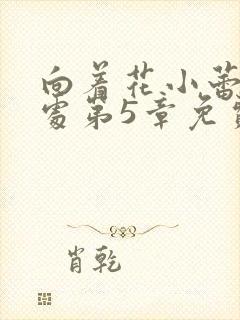 向着花小蕾
处第5章免费
肖乾